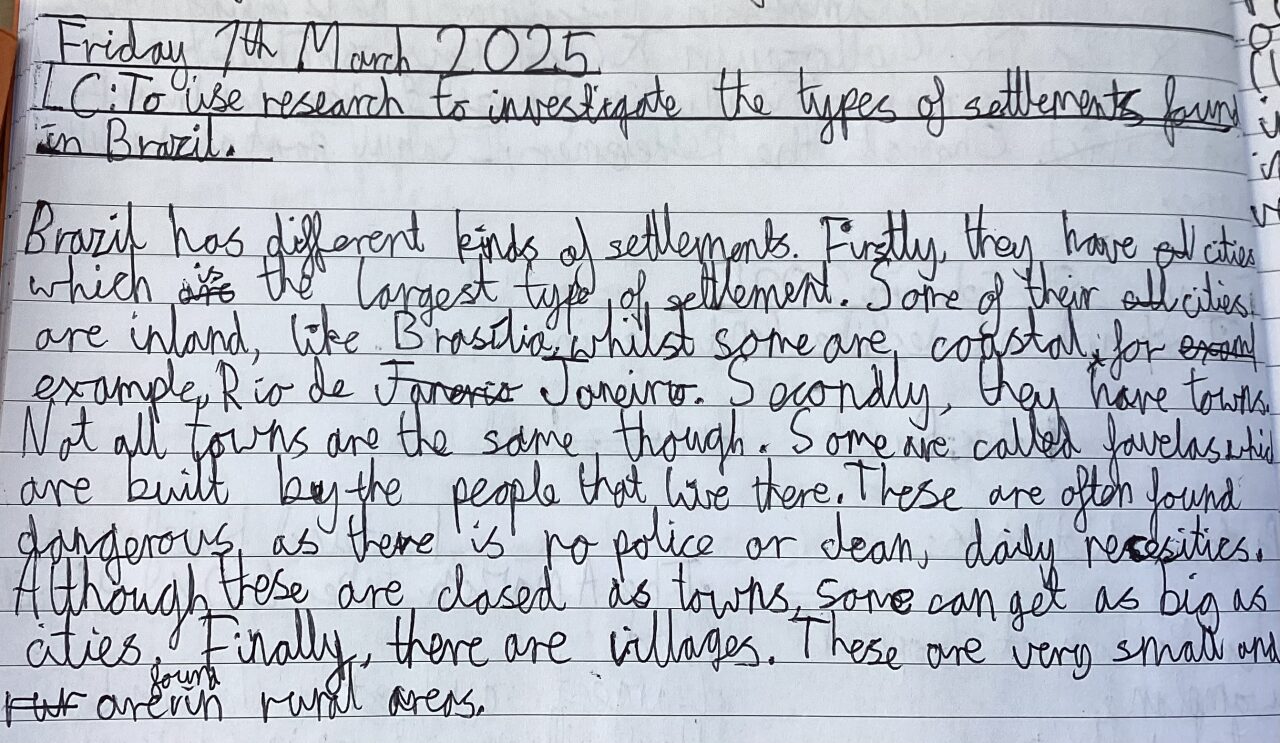 Friday 7th March 2025
LC: To use research to investigate the types of settlements foun
in Brazil.
Brazil has different kinds of settlements. Firstly, they have cities
which is the largest type of settlement. Some of their cities
are inland, like Brasilia, whilst some are coastal, for
example, Rio de Janeiro. Secondly, they have towns.
Not all towns are the same though. Some are called favelas whic
are built by the people that live there. These are often found
dangerous as there is no police or clean, daily necesities.
Although these are classed as towns, some can get as big as
cities. Finally, there are villages. These are very small and
are found in rural areas.